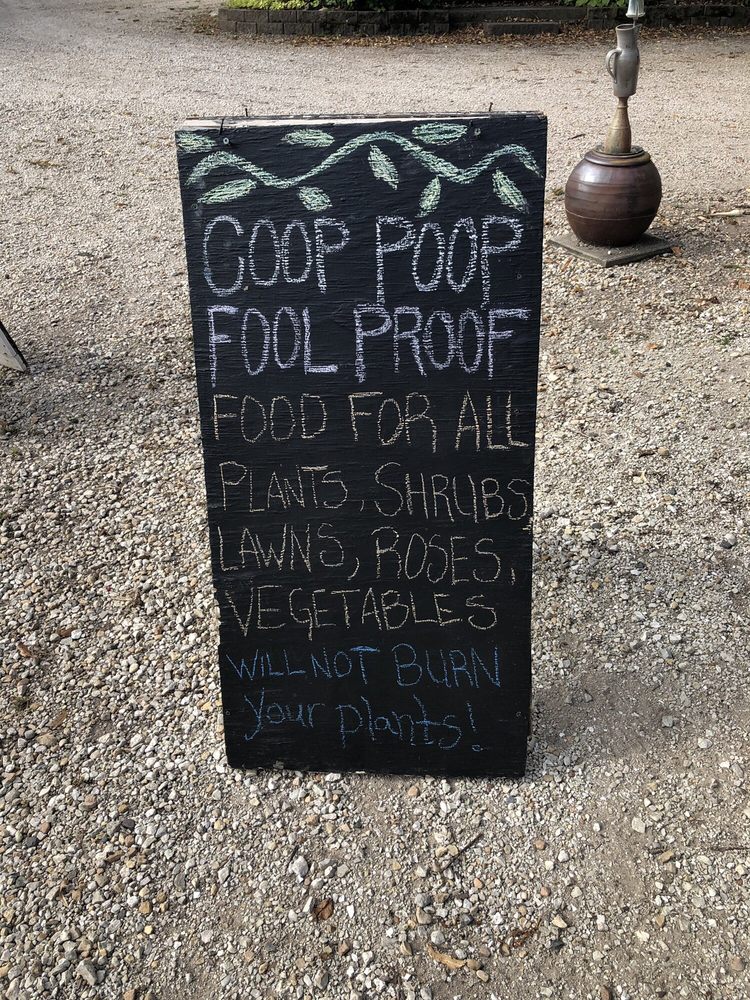 COOP POOP
FOOL PROOF
FOOD FOR ALL
PLANTS, SHRUBS
LAWNS, ROSES,
VEGETABLES
WILL NOT BURN
your plants!